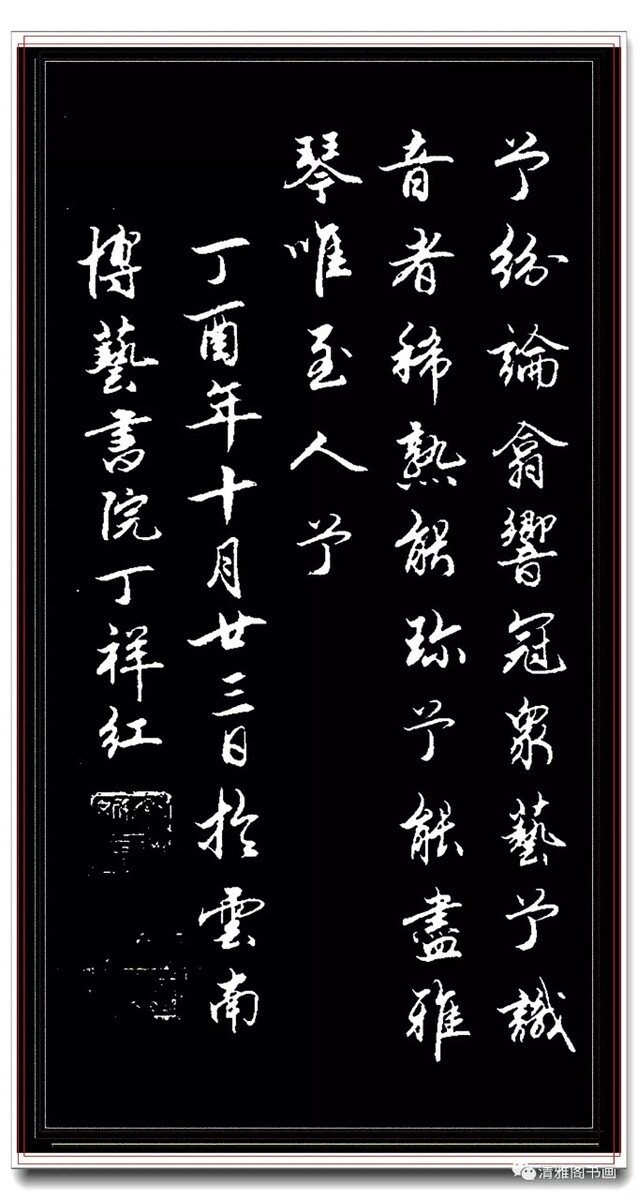 兮紛論翕響冠眾藝兮識
音者稀熟能珎兮能盡雅
琴唯至人兮
丁酉年十月廿三日於雲南
博藝書院丁祥紅
清雅阁书画